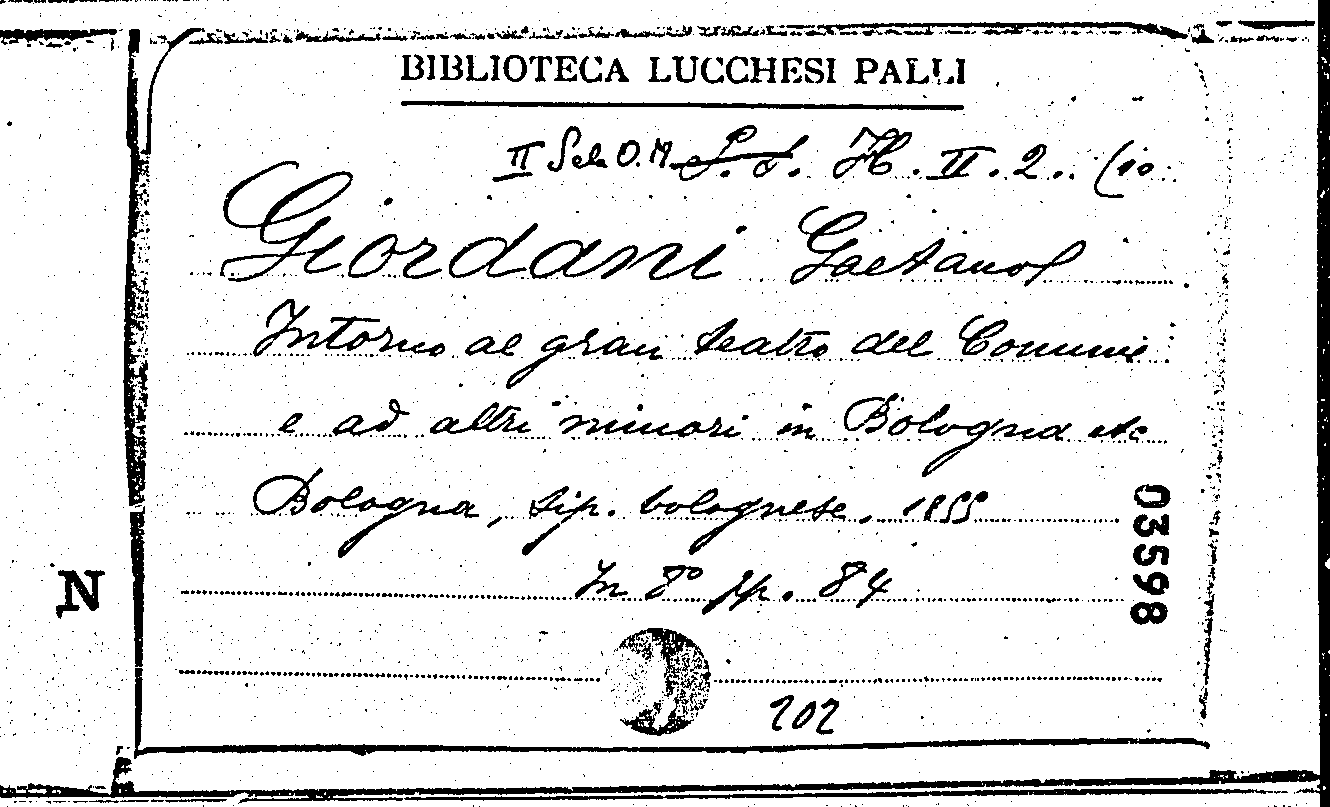 BIBLIOTECA LUCCHESI PALLI
II Sala O.M. S. d. H. II. 2. (10
Giordani Gaetano
Intorno al gran teatro del Comune
e ad altri minori in Bologna etc
Bologna, tip. bolognese, 1855
In 8° pp. 84
03598
N
202